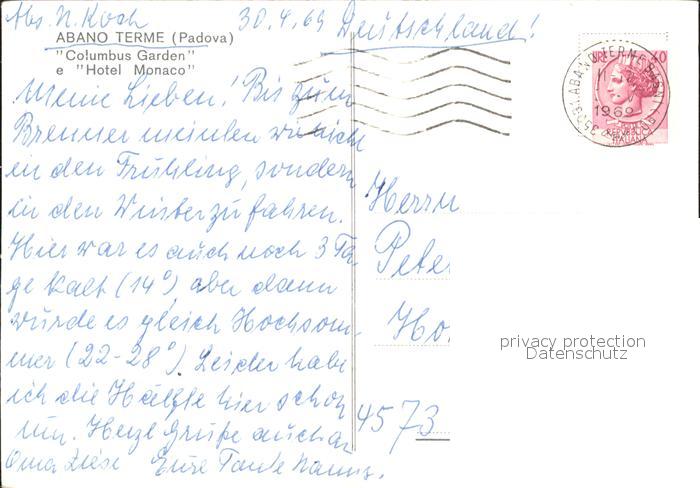 Abs. N. Koch 30.4.69 Deutschland!
ABANO TERME (Padova)
"Columbus Garden"
e "Hotel Monaco"
Meine Lieben! Bis zum
Brenner meinten wir nicht
in den Frühling, sondern
in den Winter zu fahren.
Hier war es auch noch 3 Ta-
ge kalt (14°) aber dann
wurde es gleich Hochsom-
mer (22-28°). Leider habe
ich die Hälfte hier schon
um. Herzl. Grüße auch an
Oma Eure Tante
Herrn
Pete
Ho
4573
privacy protection
Datenschutz
ABANO TERME
1969
40
REPUBBLICA
ITALIANA